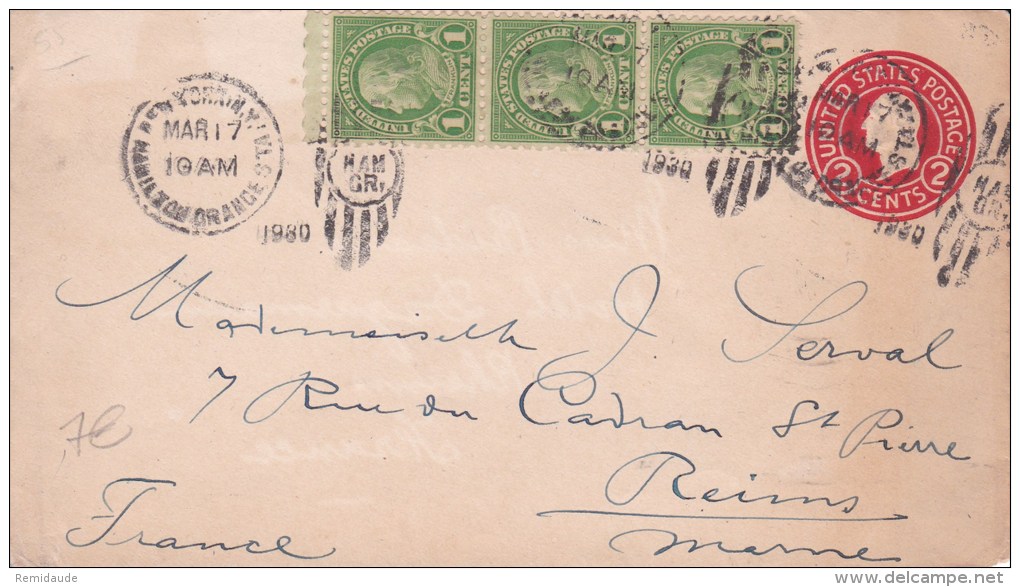 UNITED STATES POSTAGE
2 CENTS 2
STATES POSTAGE
1 ONE CENT
STATES POSTAGE
1
1 ONE CENT 1
NEW YORK, N.Y.
MAR 17
10 AM
HAMILTON GRANGE STA.
1930
HAM
GR.
MAR 17
10 A
1930
MAR 17
AM
STA.
1930
HAM
GR.
Mademoiselle J. Serval
7 Rue du Cadran St Pierre
Reims
Marne
France
7€
Remidaude
delcampe.net